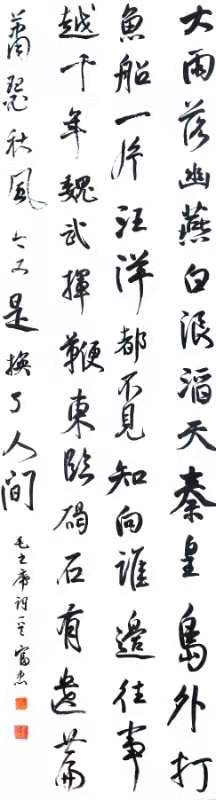 大雨落幽燕白浪滔天秦皇島外打
魚船一片汪洋都不見知向誰邊往事
越千年魏武揮鞭東臨碣石有遺篇
蕭瑟秋風今又是換了人间
毛主席词一首